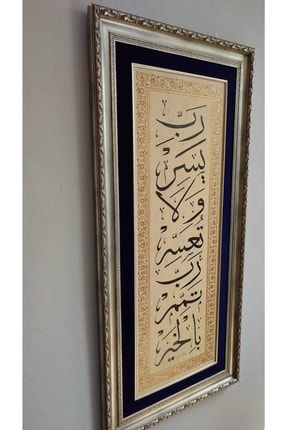 رَبِّ
يَسِّرْ
وَلَا
تُعَسِّرْ
رَبِّ
تَمِّمْ
بِالْخَيْرِ